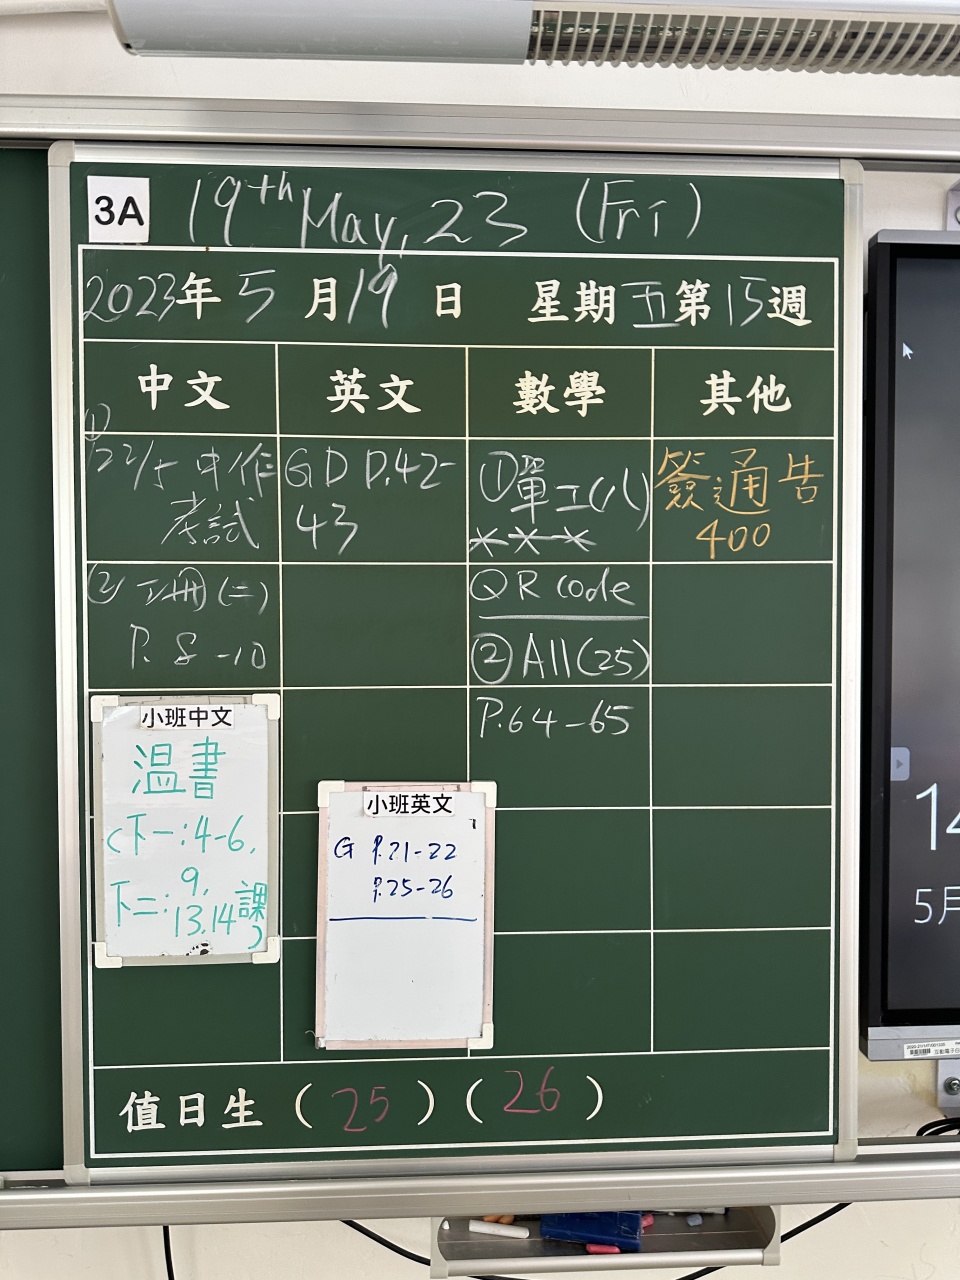 3A
19th May, 23 (Fri)
2023年5月19日 星期五第15週
中文
①
22/5 中作
考試
② 下冊(二)
P. 8-10
小班中文
温書
(下一:4-6,
9,
下二:13,14課)
英文
GD P.42-
43
小班英文
G P.21-22
P.25-26
數學
①單工(八)
***
QR code
②All(25)
P.64-65
其他
簽通告
400
值日生(25)(26)
14
5月